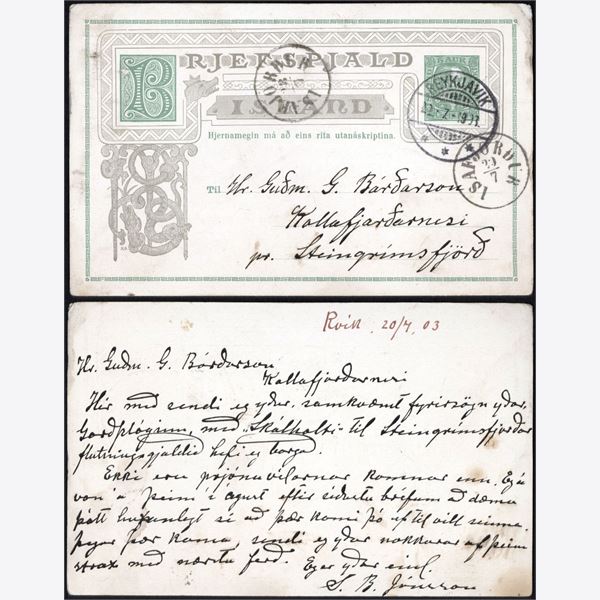 BRJEFSPJALD
ÍSLAND
Hjernamegin má að eins rita utanáskriptina.
REYKJAVÍK
ISAFJÖRÐUR
ISAFJÖRÐUR
29/7
Til Hr. Guðm. G. Bárðarson
Kollafjarðarnesi
pr. Steingrímsfjörð
Rvík 20/7 03
Hr. Guðm. G. Bárðarson
Kollafjarðarnesi
Hér með sendi eg yður, samkvæmt fyrirsögn yðar,
Garðplóginn, með "Skálholti" til Steingrímsfjarðar
flutningsgjaldið hefi eg borgað.
Ekki eru prjónavélarnar komnar enn. Eg á
von á þeim í ágúst eftir síðustu bréfum að dæma
þótt hugsanlegt sé að þær komi þó ef til vill seinna.
þegar þær koma, sendi eg yður nokkurar af þeim
strax með næstu ferð. Eg er yðar einl.
S. B. Jónsson